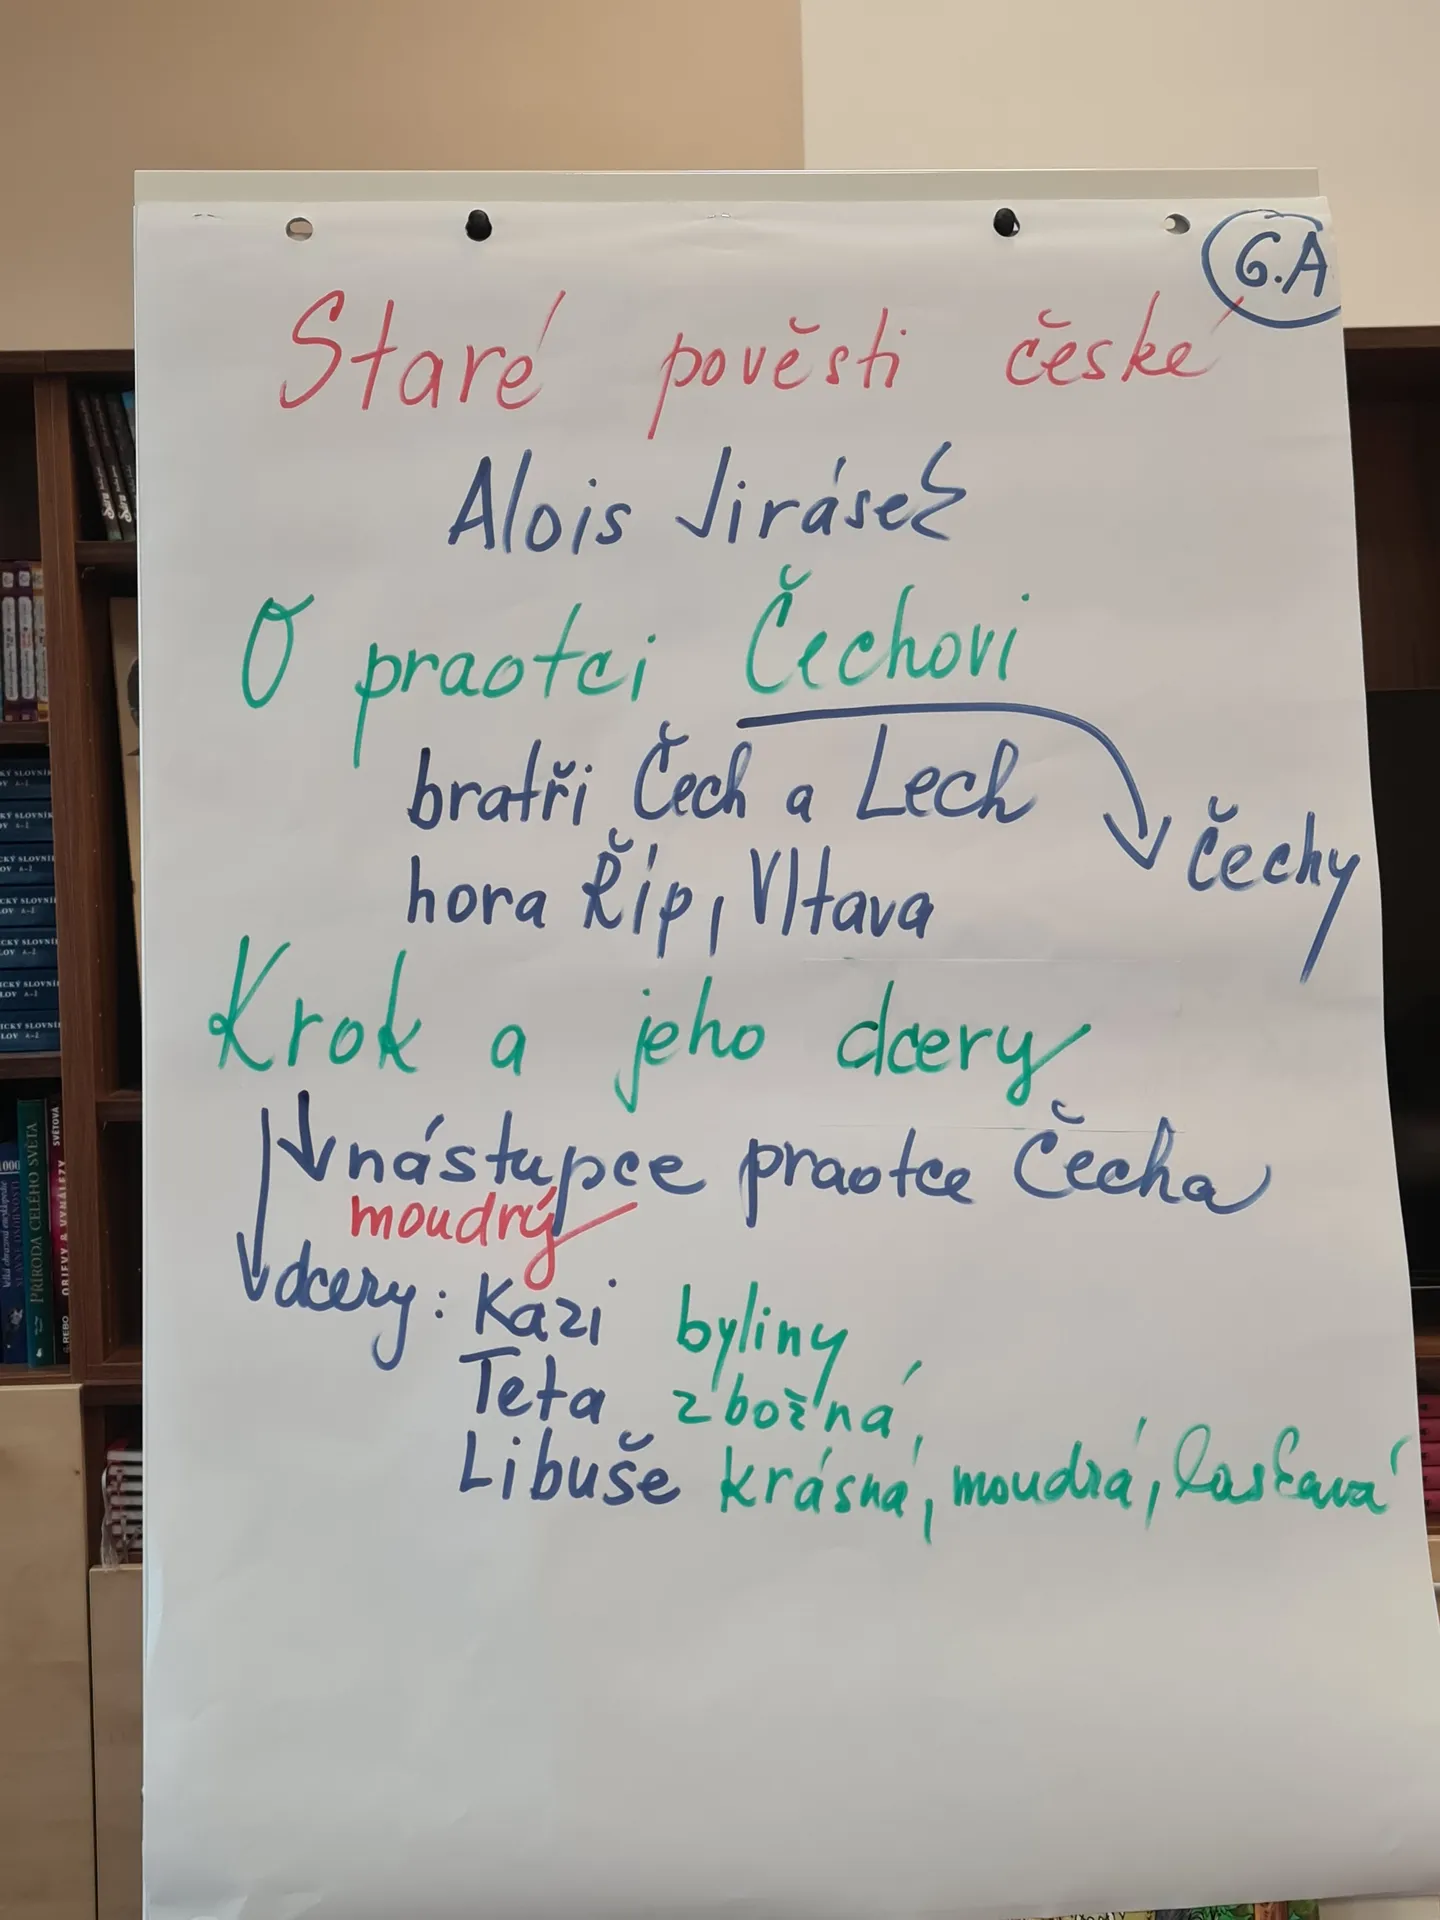 6.A
Staré pověsti české
Alois Jirásek
O praotci Čechovi
bratři Čech a Lech
Čechy
hora Říp, Vltava
Krok a jeho dcery
nástupce praotce Čecha
moudrý
dcery: Kazi byliny
Teta zbožná
Libuše krásná, moudrá, laskavá
PŘÍRODA CELÉHO SVĚTA
OBJEVY & VYNÁLEZY
SVĚTOVÁ
REBO